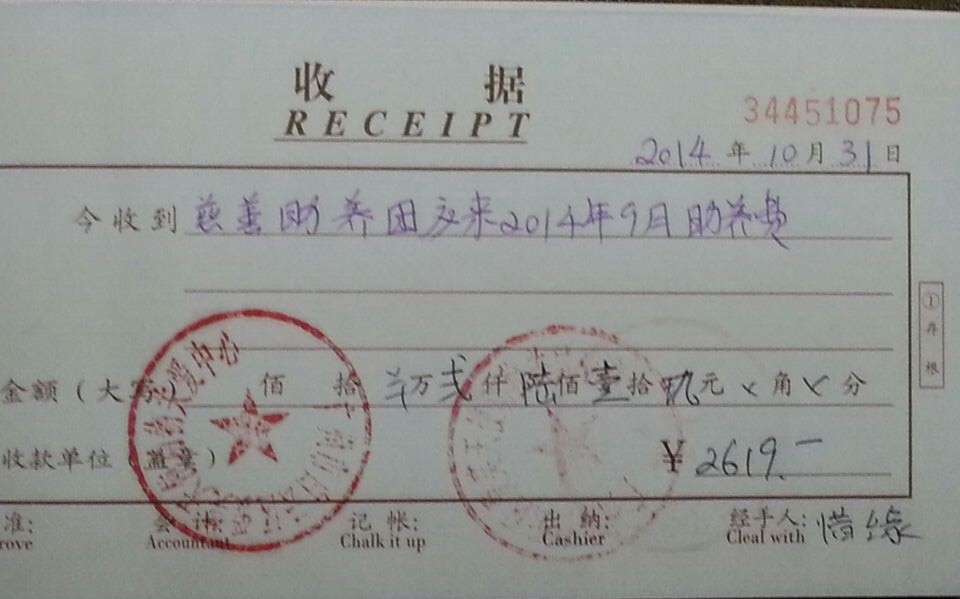 收据
RECEIPT
34451075
2014年10月31日
今收到 慈善助养团交来2014年9月助养费
①存根
金额(大写) 佰 拾 万 贰仟 陆佰 壹拾 玖元 × 角 × 分
爱中心
收款单位(盖章) ¥2619.-
准: 会计: 记帐: 出纳: 经手人: 惜缘
rove Accountant Chalk it up Cashier Cleal with